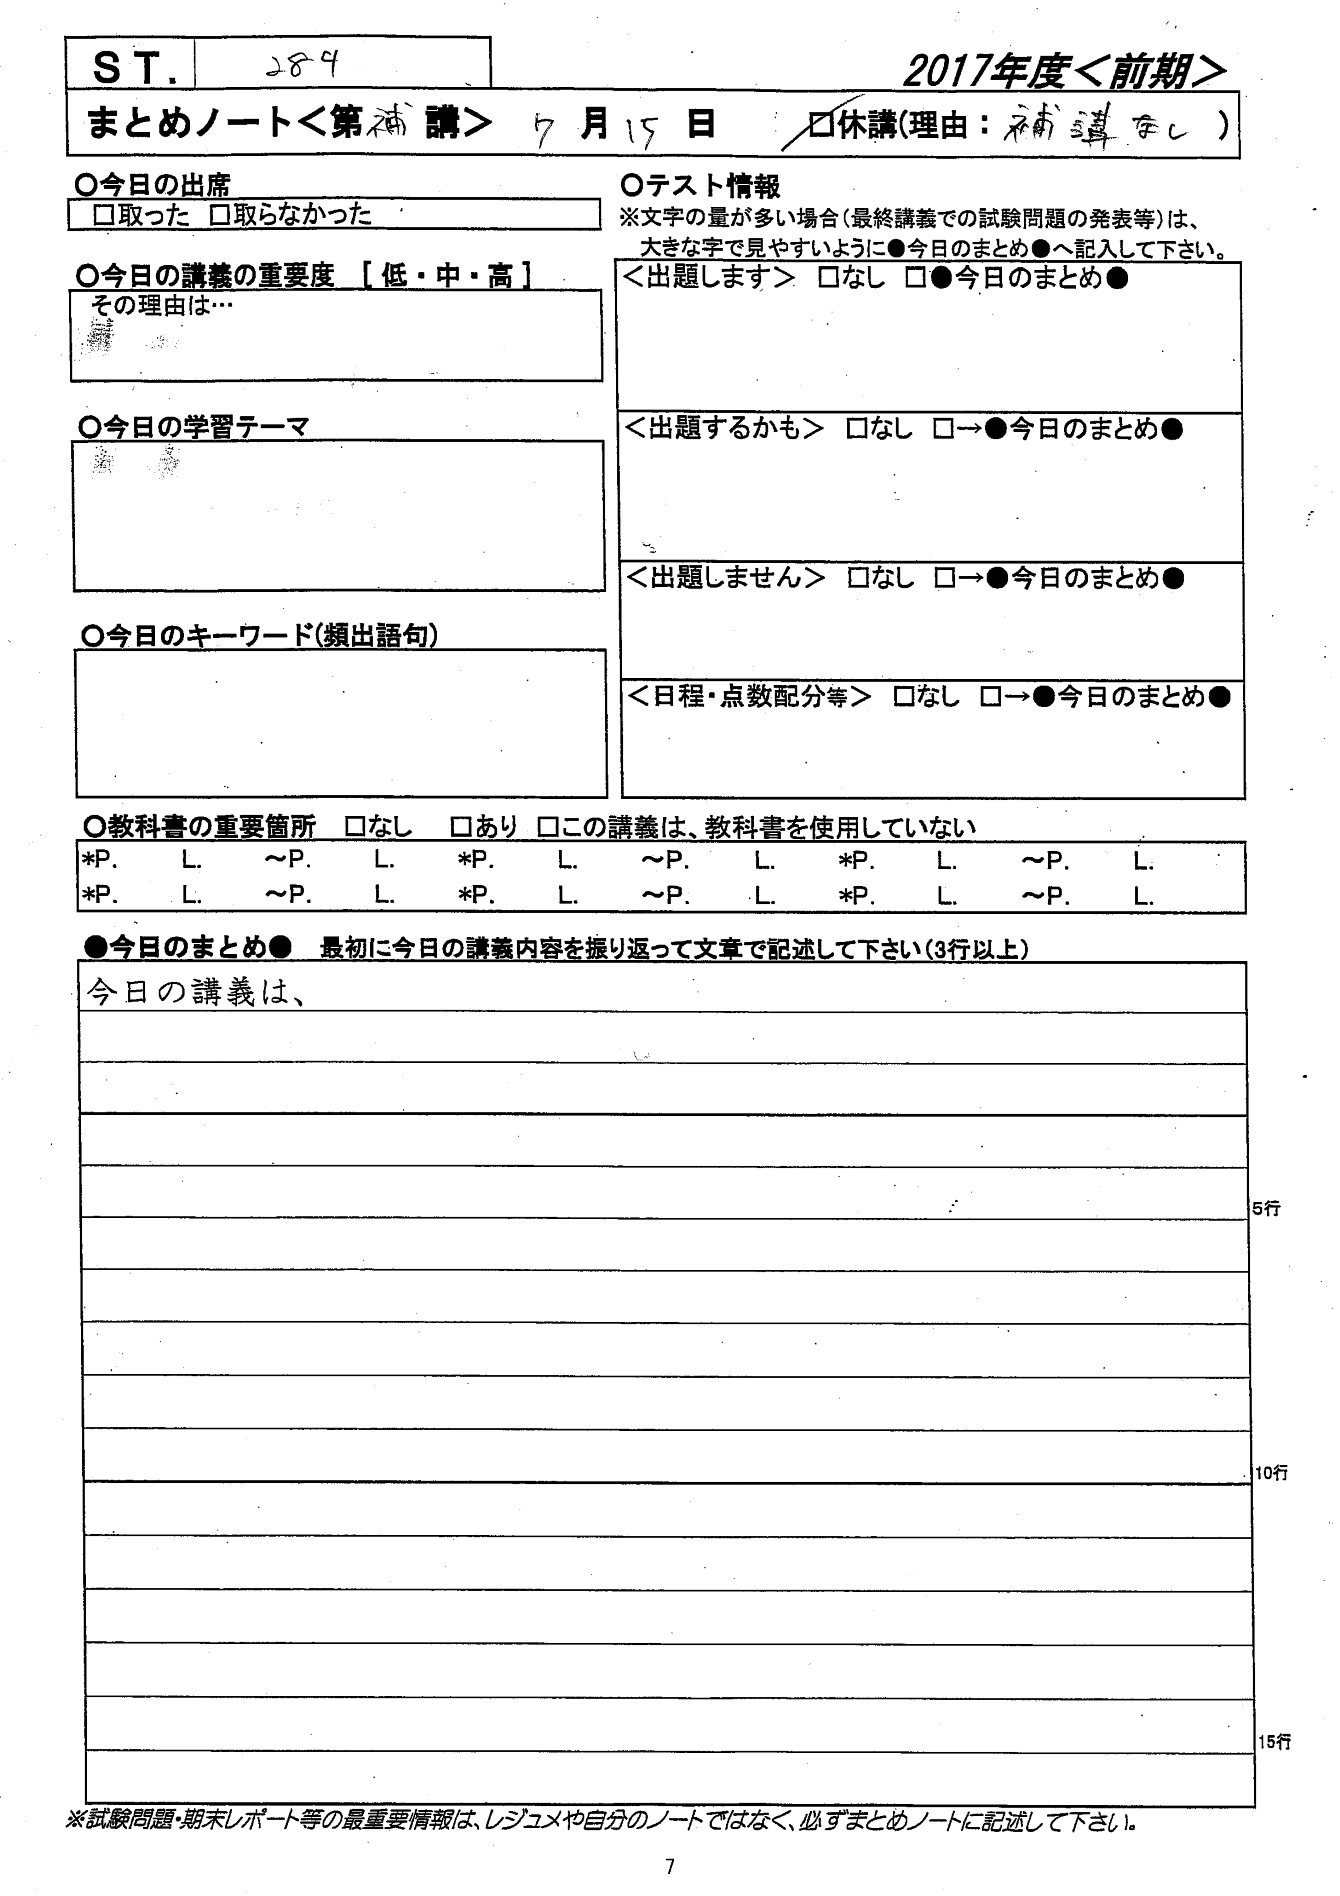 ST. 284
2017年度＜前期＞
まとめノート＜第補講＞ 7月15日 ☑休講(理由：補講なし)
〇今日の出席
□取った □取らなかった
〇今日の講義の重要度 [低・中・高]
その理由は…
〇今日の学習テーマ
〇今日のキーワード(頻出語句)
〇テスト情報
※文字の量が多い場合(最終講義での試験問題の発表等)は、
大きな字で見やすいように●今日のまとめ●へ記入して下さい。
＜出題します＞ □なし □●今日のまとめ●
＜出題するかも＞ □なし □→●今日のまとめ●
＜出題しません＞ □なし □→●今日のまとめ●
＜日程・点数配分等＞ □なし □→●今日のまとめ●
〇教科書の重要箇所 □なし □あり □この講義は、教科書を使用していない
*P. L. ～P. L. *P. L. ～P. L. *P. L. ～P. L.
*P. L. ～P. L. *P. L. ～P. L. *P. L. ～P. L.
●今日のまとめ● 最初に今日の講義内容を振り返って文章で記述して下さい(3行以上)
今日の講義は、
5行
10行
15行
※試験問題・期末レポート等の最重要情報は、レジュメや自分のノートではなく、必ずまとめノートに記述して下さい。
7